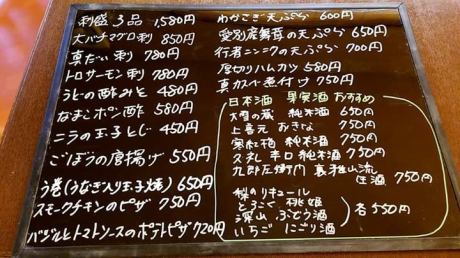 刺盛 3品 1580円
大バチマグロ刺 850円
真だい刺 780円
トロサーモン刺 780円
うどの酢みそ 480円
なまこポン酢 580円
ニラの玉子とじ 450円
ごぼうの唐揚げ 550円
う巻(うなぎ入り玉子焼) 650円
スモークチキンのピザ 750円
バジルとトマトソースのポテトピザ 720円
わかさぎ天ぷら 600円
愛別産舞茸の天ぷら 650円
行者ニンニクの天ぷら 700円
厚切りハムカツ 580円
真カスベ煮付け 750円
日本酒 果実酒 おすすめ
大雪の蔵 純米酒 650円
上喜元 おきな 750円
寒紅梅 純米酒 750円
純米酒 750円
九郎左衛門 雅山流
生酒 750円
梨のリキュール
とろこく 桃姫
深山 ぶどう酒
いちご にごり酒
各550円